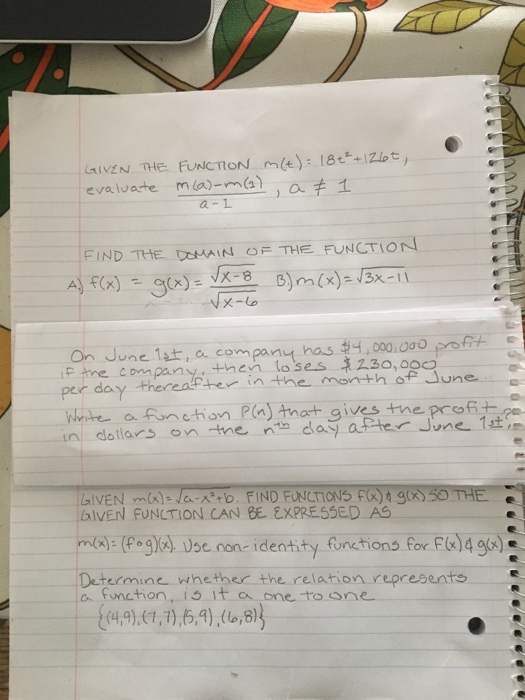 GIVEN THE FUNCTION m(t): 18t²+126t,
evaluate m(a)-m(1) / a-1, a ≠ 1
FIND THE DOMAIN OF THE FUNCTION
A) f(x) = g(x) = √x-8 / √x-6 B) m(x) = √3x-11
On June 1st, a company has $4,000,000 profit
if the company, then loses $230,000
per day thereafter in the month of June
Write a function P(n) that gives the profit
in dollars on the nth day after June 1st.
GIVEN m(x)=√a-x²+b. FIND FUNCTIONS f(x) & g(x) SO THE
GIVEN FUNCTION CAN BE EXPRESSED AS
m(x)= (fog)(x). Use non-identity functions for F(x) & g(x)
Determine whether the relation represents
a function, is it a one to one
{(4,9),(7,7),(5,9),(6,8)}